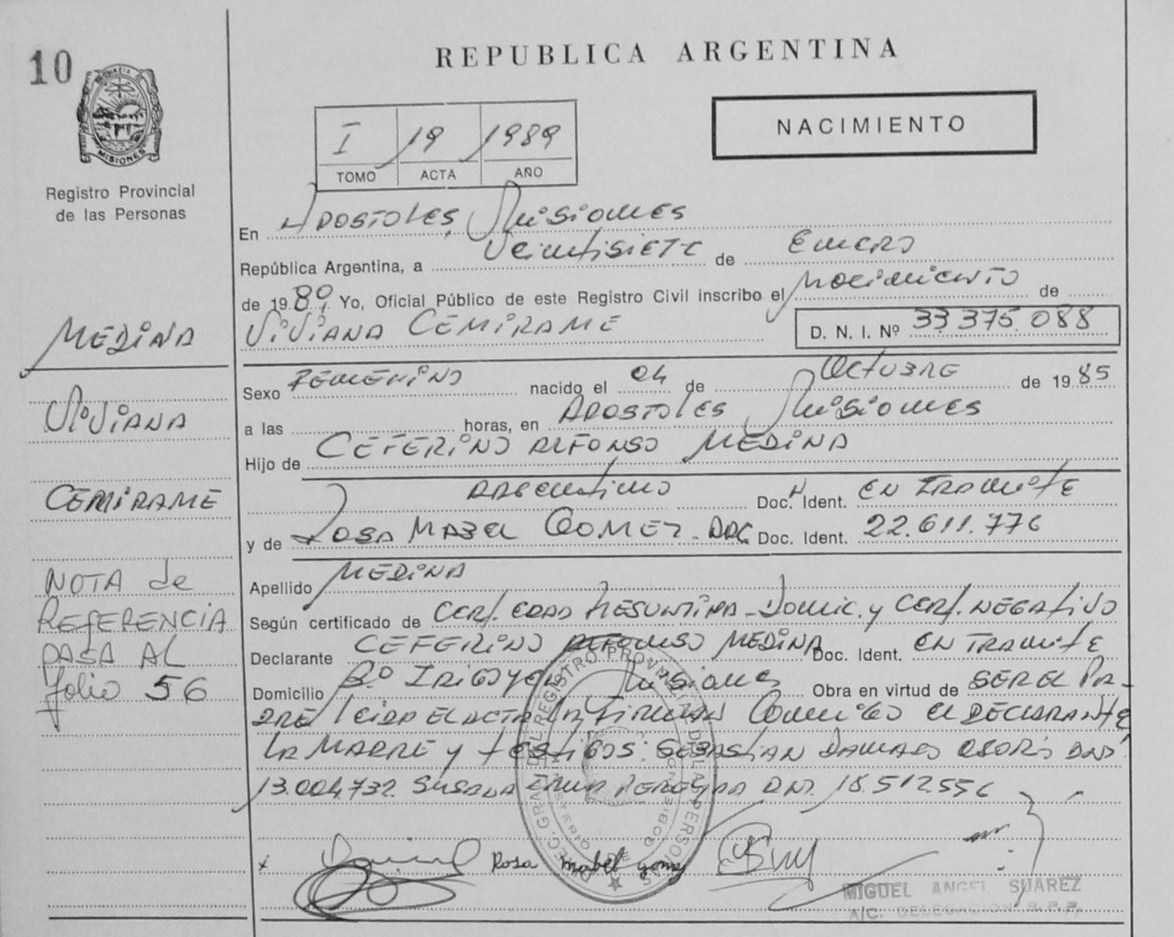 10
REPUBLICA ARGENTINA
MISIONES
Registro Provincial
de las Personas
I 19 1989
TOMO ACTA AÑO
NACIMIENTO
En APOSTOLES, Misiones
República Argentina, a Veintisiete de Enero
de 1989, Yo, Oficial Público de este Registro Civil inscribo el Nacimiento de
VIVIANA CEMIRAME D. N. I. Nº 33 375 088
MEDINA
VIVIANA
CEMIRAME
NOTA de
REFERENCIA
PASA AL
folio 56
Sexo FEMENINO nacido el 04 de OCTUBRE de 1985
a las horas, en APOSTOLES Misiones
Hijo de CEFERINO ALFONSO MEDINA
ARGENTINO Doc. Ident. EN TRAMITE
y de ROSA MABEL GOMEZ - ARG Doc. Ident. 22.611.776
Apellido MEDINA
Según certificado de CERT. EDAD PRESUNTIVA - DOMIC. y CERT. NEGATIVO
Declarante CEFERINO ALFONSO MEDINA Doc. Ident. EN TRAMITE
Domicilio Bº IRIGOYEN Misiones Obra en virtud de SER EL PA-
DRE LEIDA EL ACTA LA FIRMAN Conmigo el DECLARANTE
LA MADRE y TESTIGOS: SEBASTIAN DAMASO OSORIO DNI
13.004.732 SUSANA PEREYRA DNI. 18.512.556
Rosa Mabel gomez
MIGUEL ANGEL SUAREZ
A/C. DELEGACION R.P.P.